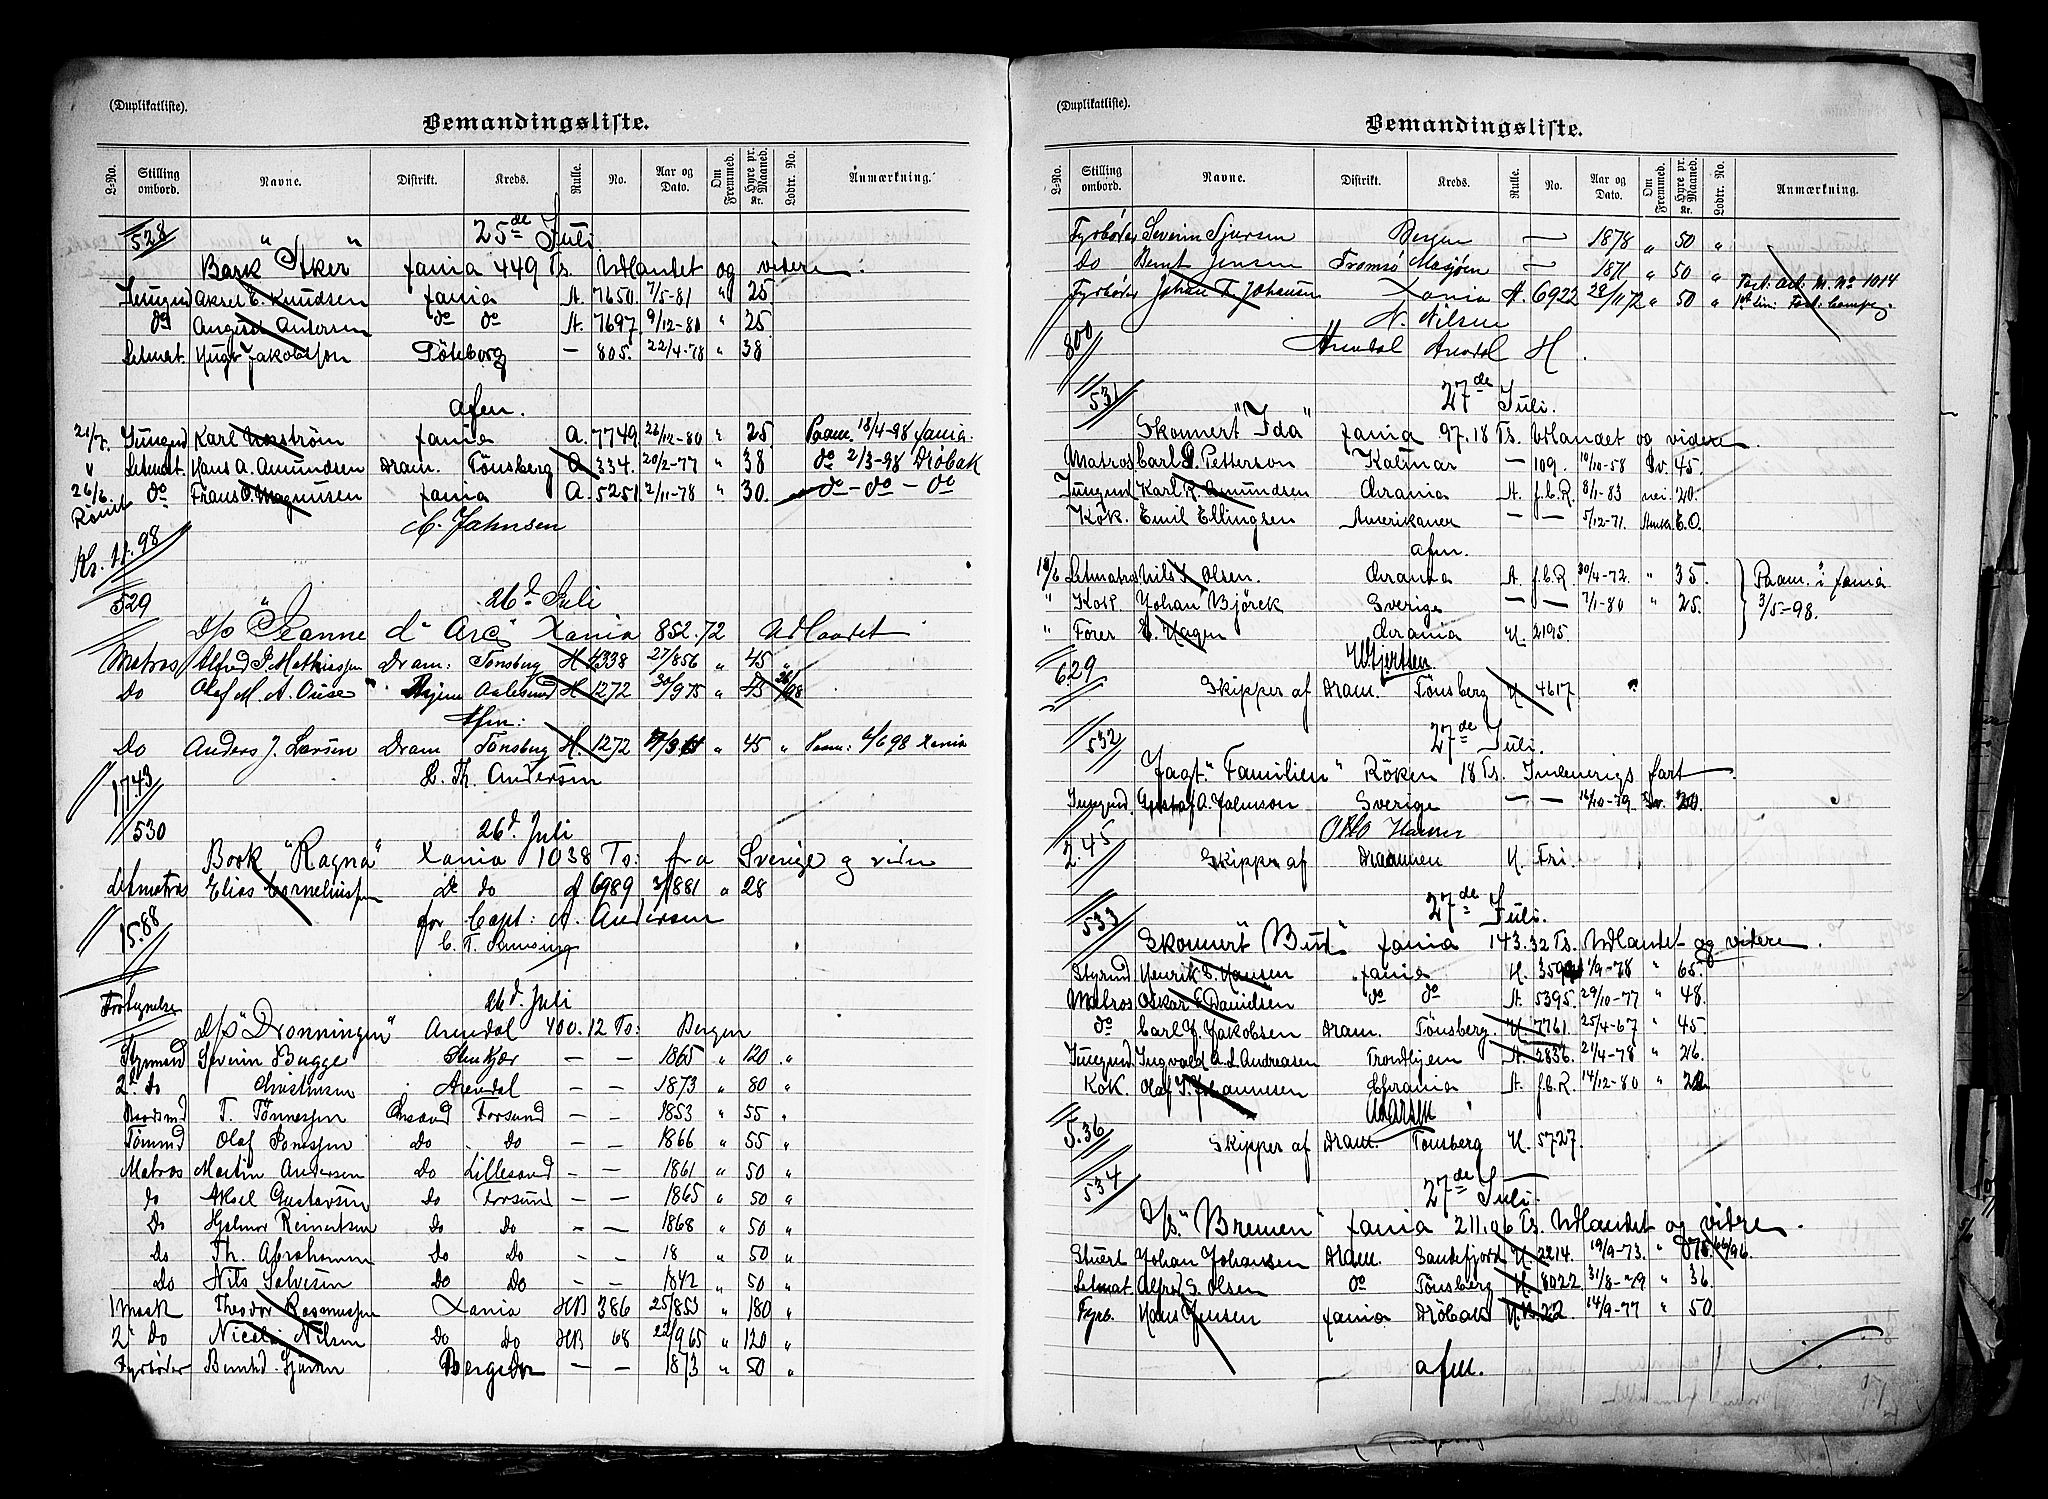 (Duplikatliste).
Bemandingsliste.
L-No. Stilling ombord. Navne. Distrikt. Kreds. Rulle. No. Aar og Dato. Om Fremmed. Hyre pr. Maaned. Kr. Lodtr. No. Anmærkning.
528 " " 25de Juli.
Bark Aker 449 Ts. Udlandet og videre.
Aksel E. Knudsen A. 7650. 7/5-81 " 25
do August Andersen do do A. 7697 9/12-80 " 25
Letmat. Jakobsson Göteborg — 805. 22/4-78 " 38
afm.
21/7. Jungmd Karl Norström A. 7749 26/12-80 " 25 Paam. 18/4-98
" Letmat. Hans A. Amundsen Dram. Tönsberg A 334. 20/2-77 " 38 do 2/3-98 Dröbak
26/6. do Frans O. Magnusen A. 5251 2/11-78 " 30. do - do - do
Römt
C. Jahnsen
Kr. 11.98
529 26d. Juli
D/S "Jeanne d'Arc" Xania 852.72 Udlandet
Matros Alfred P. Mathiassen Dram: Tönsberg H 4338 27/856 " 45 "
Do Olaf M. A. Aalesund H 1272 30/975 " 45
Afm:
Do Anders J. Larsen Dram Tönsberg H. 1272 " 45 " Paam: 4/6 98 Xania
L. Th. Andersen
1743
530 26d. Juli
Bark "Ragna" Xania 1038 Ts: fra Sverige og videre
Letmatros Elias Corneliussen Do do A 6989 3/1881 " 28
for Capt: A. Andersen
15.88
26d. Juli
D/S "Dronningen" Arendal 400.12 Ts: Bergen
Styrmand Severin Bugge Stenkjær — — 1865 " 120 "
2d do Christensen Arendal — — 1873 " 80 "
T. Tönnesen Forsund — — 1853 " 55 "
Tömmd Olaf Tonessen Do Do — — 1866 " 55 "
Matros Martin Andersen Do Lillesand — — 1861 " 50 "
do Aksel Gustavsen Do Forsund — — 1865 " 50 "
Do Hjalmar Reinertsen Do Do — — 1868 " 50 "
Do Th. Abrahamsen Do Do — — 18 " 50 "
Do Nils Salvesen Do Do — — 1842 " 50 "
1 Mask Theodor Rasmussen Xania HB 386 25/853 " 180 "
2d Do Nicolai Nilsen Do do HB 68 22/965 " 120 "
Fyrböder Bernhd. Bergen — — 1873 " 50 "
(Duplikatliste).
Bemandingsliste.
L-No. Stilling ombord. Navne. Distrikt. Kreds. Rulle. No. Aar og Dato. Om Fremmed. Hyre pr. Maaned. Kr. Lodtr. No. Anmærkning.
Fyrböder Severin Sjursen Bergen — 1878 " 50 "
Do Bernt Jensen Tromsö Mosjöen — 1871 " 50 "
Fyrböder Johan F. Johansen Xania A. 6922 28/1172 " 50 "
N. Nilsen
800 Arendal Arendal H.
531 27de Juli.
Skonnert "Ida" 97.18 Ts. Udlandet og videre.
Matros Carl Petterson Kalmar — 109. 10/10-58 Sv. 45.
Jungmd Karl R. Amundsen Chrania A. f.C.R. 8/1-83 nei 20.
Kok. Emil Ellingsen Amerikaner — — 5/12-71.
afm.
18/6 Letmatros Nils Olsen. Chrania A. f.C.R 30/4-72 " 35. Paam. i
" Kok. Johan Björck Sverige — — 7/1-80 " 25. 3/5-98.
" Förer C. Hagen Chrania H. 2195.
629 Skipper af Dram. Tönsberg H. 4617.
532 27de Juli.
Jagt. "Familien" Röken 18 Ts. Indenrigs fart
Jungmd. Gustaf A. Johnson Sverige — — 16/10-79 Sv. 20.
Otto
2.45 Skipper af Drammen H. Fri
533 27de Juli.
Skonnert 143.32 Ts. Udlandet og videre.
Styrmd Henrik Hansen H. 1/9-78 " 65.
Matros Oskar E. Davidsen do do A. 5395. 29/10-77 " 48.
do Carl J. Jakobsen Dram. Tönsberg. H. 7761. 25/4-67 " 45
Jungmd. Ingvald A. L. Andreasen Trondhjem A. 2836. 21/4-78 " 26.
Kok. Olaf J. Johannesen Chrania A. f.C.R. 14/12-80 "
5.36 Skipper af Dram Tönsberg H. 5727.
534 27de Juli.
D/S. "Bremen" 211.06 Ts. Udlandet og videre.
Stuert Johan Johansen Dram. Sandefjord H. 2214. 19/9-73. "
Letmat Alfred S. Olsen do Tönsberg H. 8022 31/8-79 " 36.
Fyrb. Hans Jensen Dröbak 14/9-77 " 50.
afm.